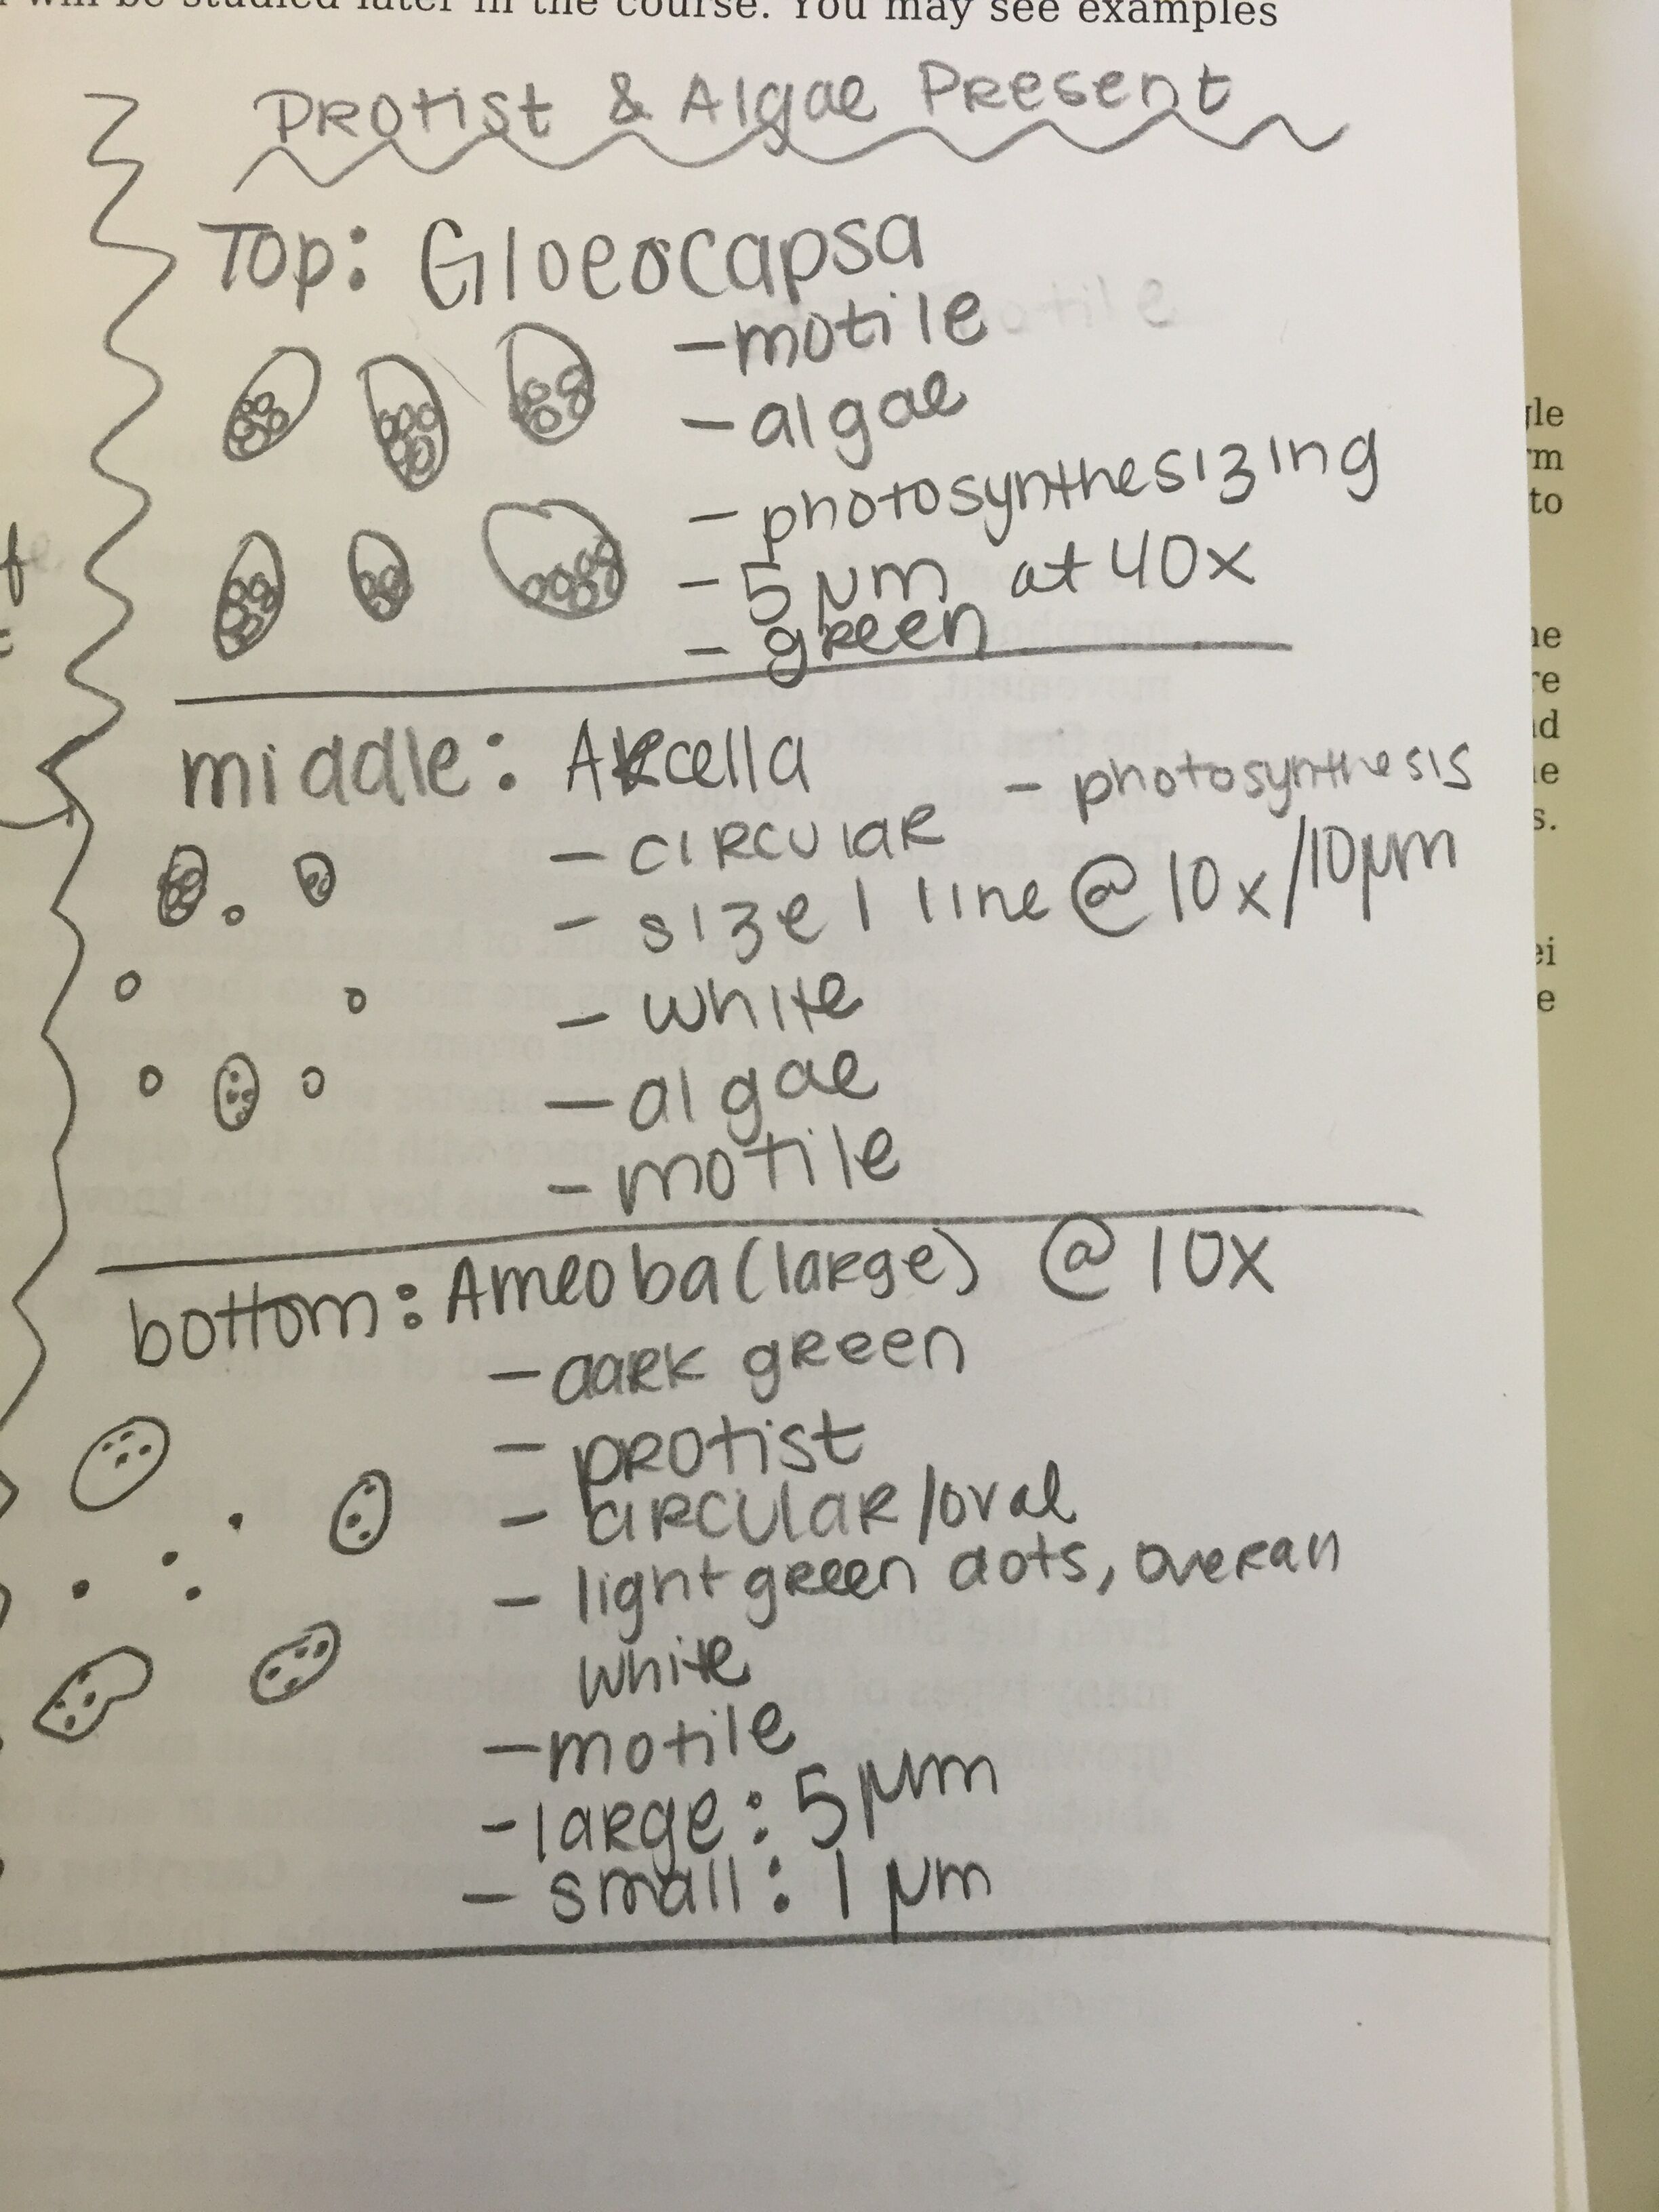 will be studied later in the course. You may see examples
Protist & Algae Present
Top: Gloeocapsa
- motile
- algae
- photosynthesizing
- 5 μm at 40x
- green
middle: Arcella
- photosynthesis
- circular
- size 1 line @ 10x/10μm
- white
- algae
- motile
bottom: Ameoba (large) @ 10x
- dark green
- protist
- circular/oval
- light green dots, overall
white
- motile
- large: 5 μm
- small: 1 μm